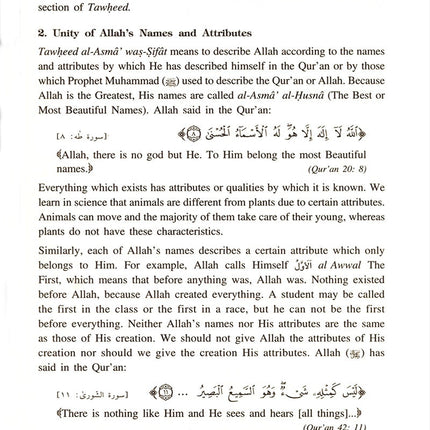 section of Tawḥeed.
2. Unity of Allah's Names and Attributes
Tawḥeed al-Asmâ' waṣ-Ṣifât means to describe Allah according to the names
and attributes by which He has described himself in the Qur'an or by those
which Prophet Muhammad (ﷺ) used to describe the Qur'an or Allah. Because
Allah is the Greatest, His names are called al-Asmâ' al-Ḥusnâ (The Best or
Most Beautiful Names). Allah said in the Qur'an:
﴿اللَّهُ لَا إِلَهَ إِلَّا هُوَ لَهُ الْأَسْمَاءُ الْحُسْنَى ﴿٨﴾﴾ [سورة طه: ٨]
﴾Allah, there is no god but He. To Him belong the most Beautiful
names.﴿ (Qur'an 20: 8)
Everything which exists has attributes or qualities by which it is known. We
learn in science that animals are different from plants due to certain attributes.
Animals can move and the majority of them take care of their young, whereas
plants do not have these characteristics.
Similarly, each of Allah's names describes a certain attribute which only
belongs to Him. For example, Allah calls Himself الأَوَّلُ al Awwal The
First, which means that before anything was, Allah was. Nothing existed
before Allah, because Allah created everything. A student may be called
the first in the class or the first in a race, but he can not be the first
before everything. Neither Allah's names nor His attributes are the same
as those of His creation. We should not give Allah the attributes of His
creation nor should we give the creation His attributes. Allah (ﷻ) has
said in the Qur'an:
﴿لَيْسَ كَمِثْلِهِ شَيْءٌ وَهُوَ السَّمِيعُ الْبَصِيرُ ... ﴿١١﴾﴾ [سورة الشورى: ١١]
﴾There is nothing like Him and He sees and hears [all things]...﴿
(Qur'an 42: 11)